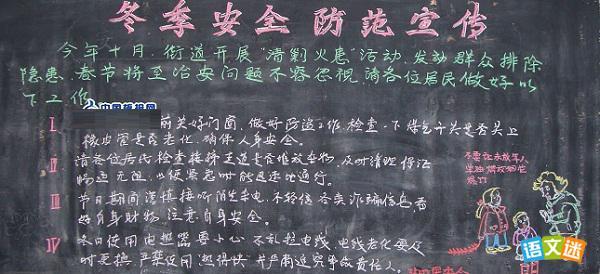 冬季安全防范宣传
今年十月,街道开展"清剿火患"活动,发动群众排除
隐患.春节将至治安问题不容忽视,请各位居民做好以
下工作
中国板报网
I 前关好门窗,做好防盗工作,检查一下煤气开关是否关上
橡皮管是否老化,确保人身安全。
II 请各位居民检查楼梯走道是否堆放杂物,及时清理保证
畅通无阻,以便紧急时能迅速地通行。
III 节日期间谨慎接听陌生来电,不轻信各类诈骗信息,看
好自身财物,注意自身安全。
IV 冬日使用电热器要小心,不乱拉电线,电线老化要及
时更换,严禁使用
不要让未成年人
单独燃放烟花
爆竹
语文迷